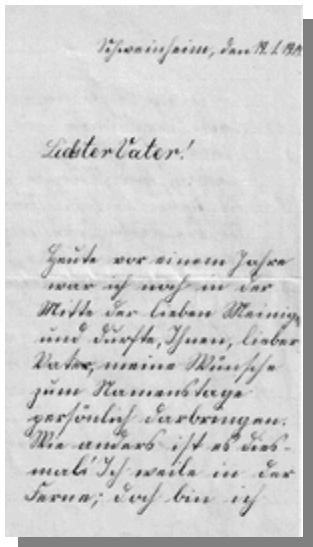 Schweinheim, den 19. 2. 19
Liebster Vater!
Heute vor einem Jahre
war ich noch in der
Mitte der lieben Meinigen
und durfte, Ihnen, lieber
Vater, meine Wünsche
zum Namenstage
persönlich darbringen.
Wie anders ist es dies-
mal! Ich weile in der
Ferne; doch bin ich